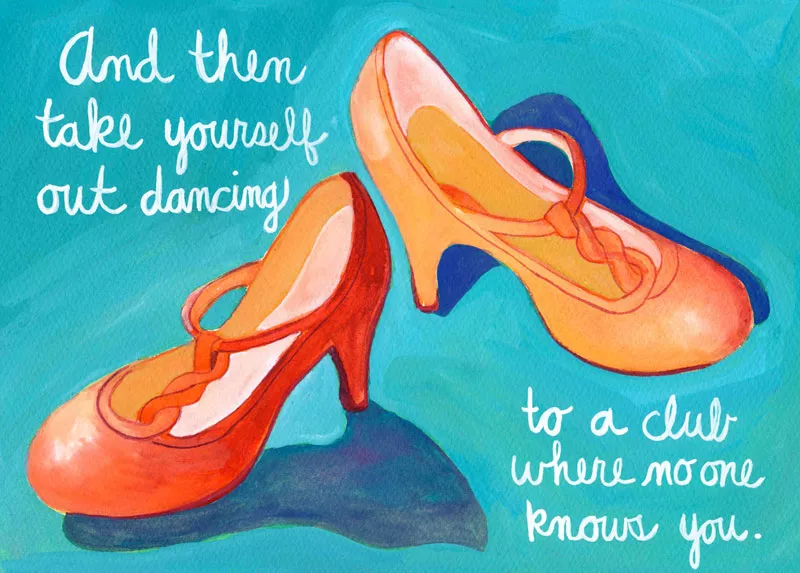 And then
take yourself
out dancing
to a club
where no one
knows you.